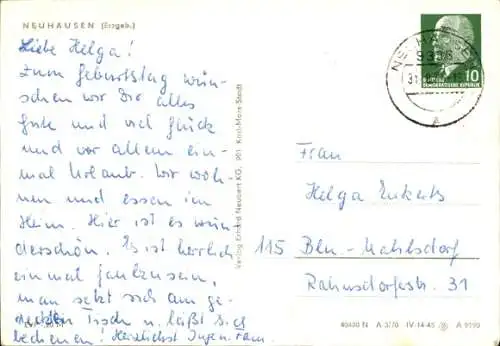 NEUHAUSEN (Erzgeb.)
Liebe Helga!
Zum Geburtstag wün-
schen wir Dir alles
Gute und viel Glück
und vor allem ein-
mal Urlaub. Wir woh-
nen und essen im
Heim. Hier ist es wun-
derschön. Es ist herrlich
einmal faulzusein,
man setzt sich am ge-
deckten Tisch u. läßt sich
bedienen! Herzlichst
Verlag Erhard Neubert KG, 901 Karl-Marx-Stadt
NEUHAUSEN
DEUTSCHE
DEMOKRATISCHE REPUBLIK
10
A
Frau
Helga
115 Bln-Mahlsdorf
Rahnsdorferstr. 31
A 3/70 IV-14-45 A 9190